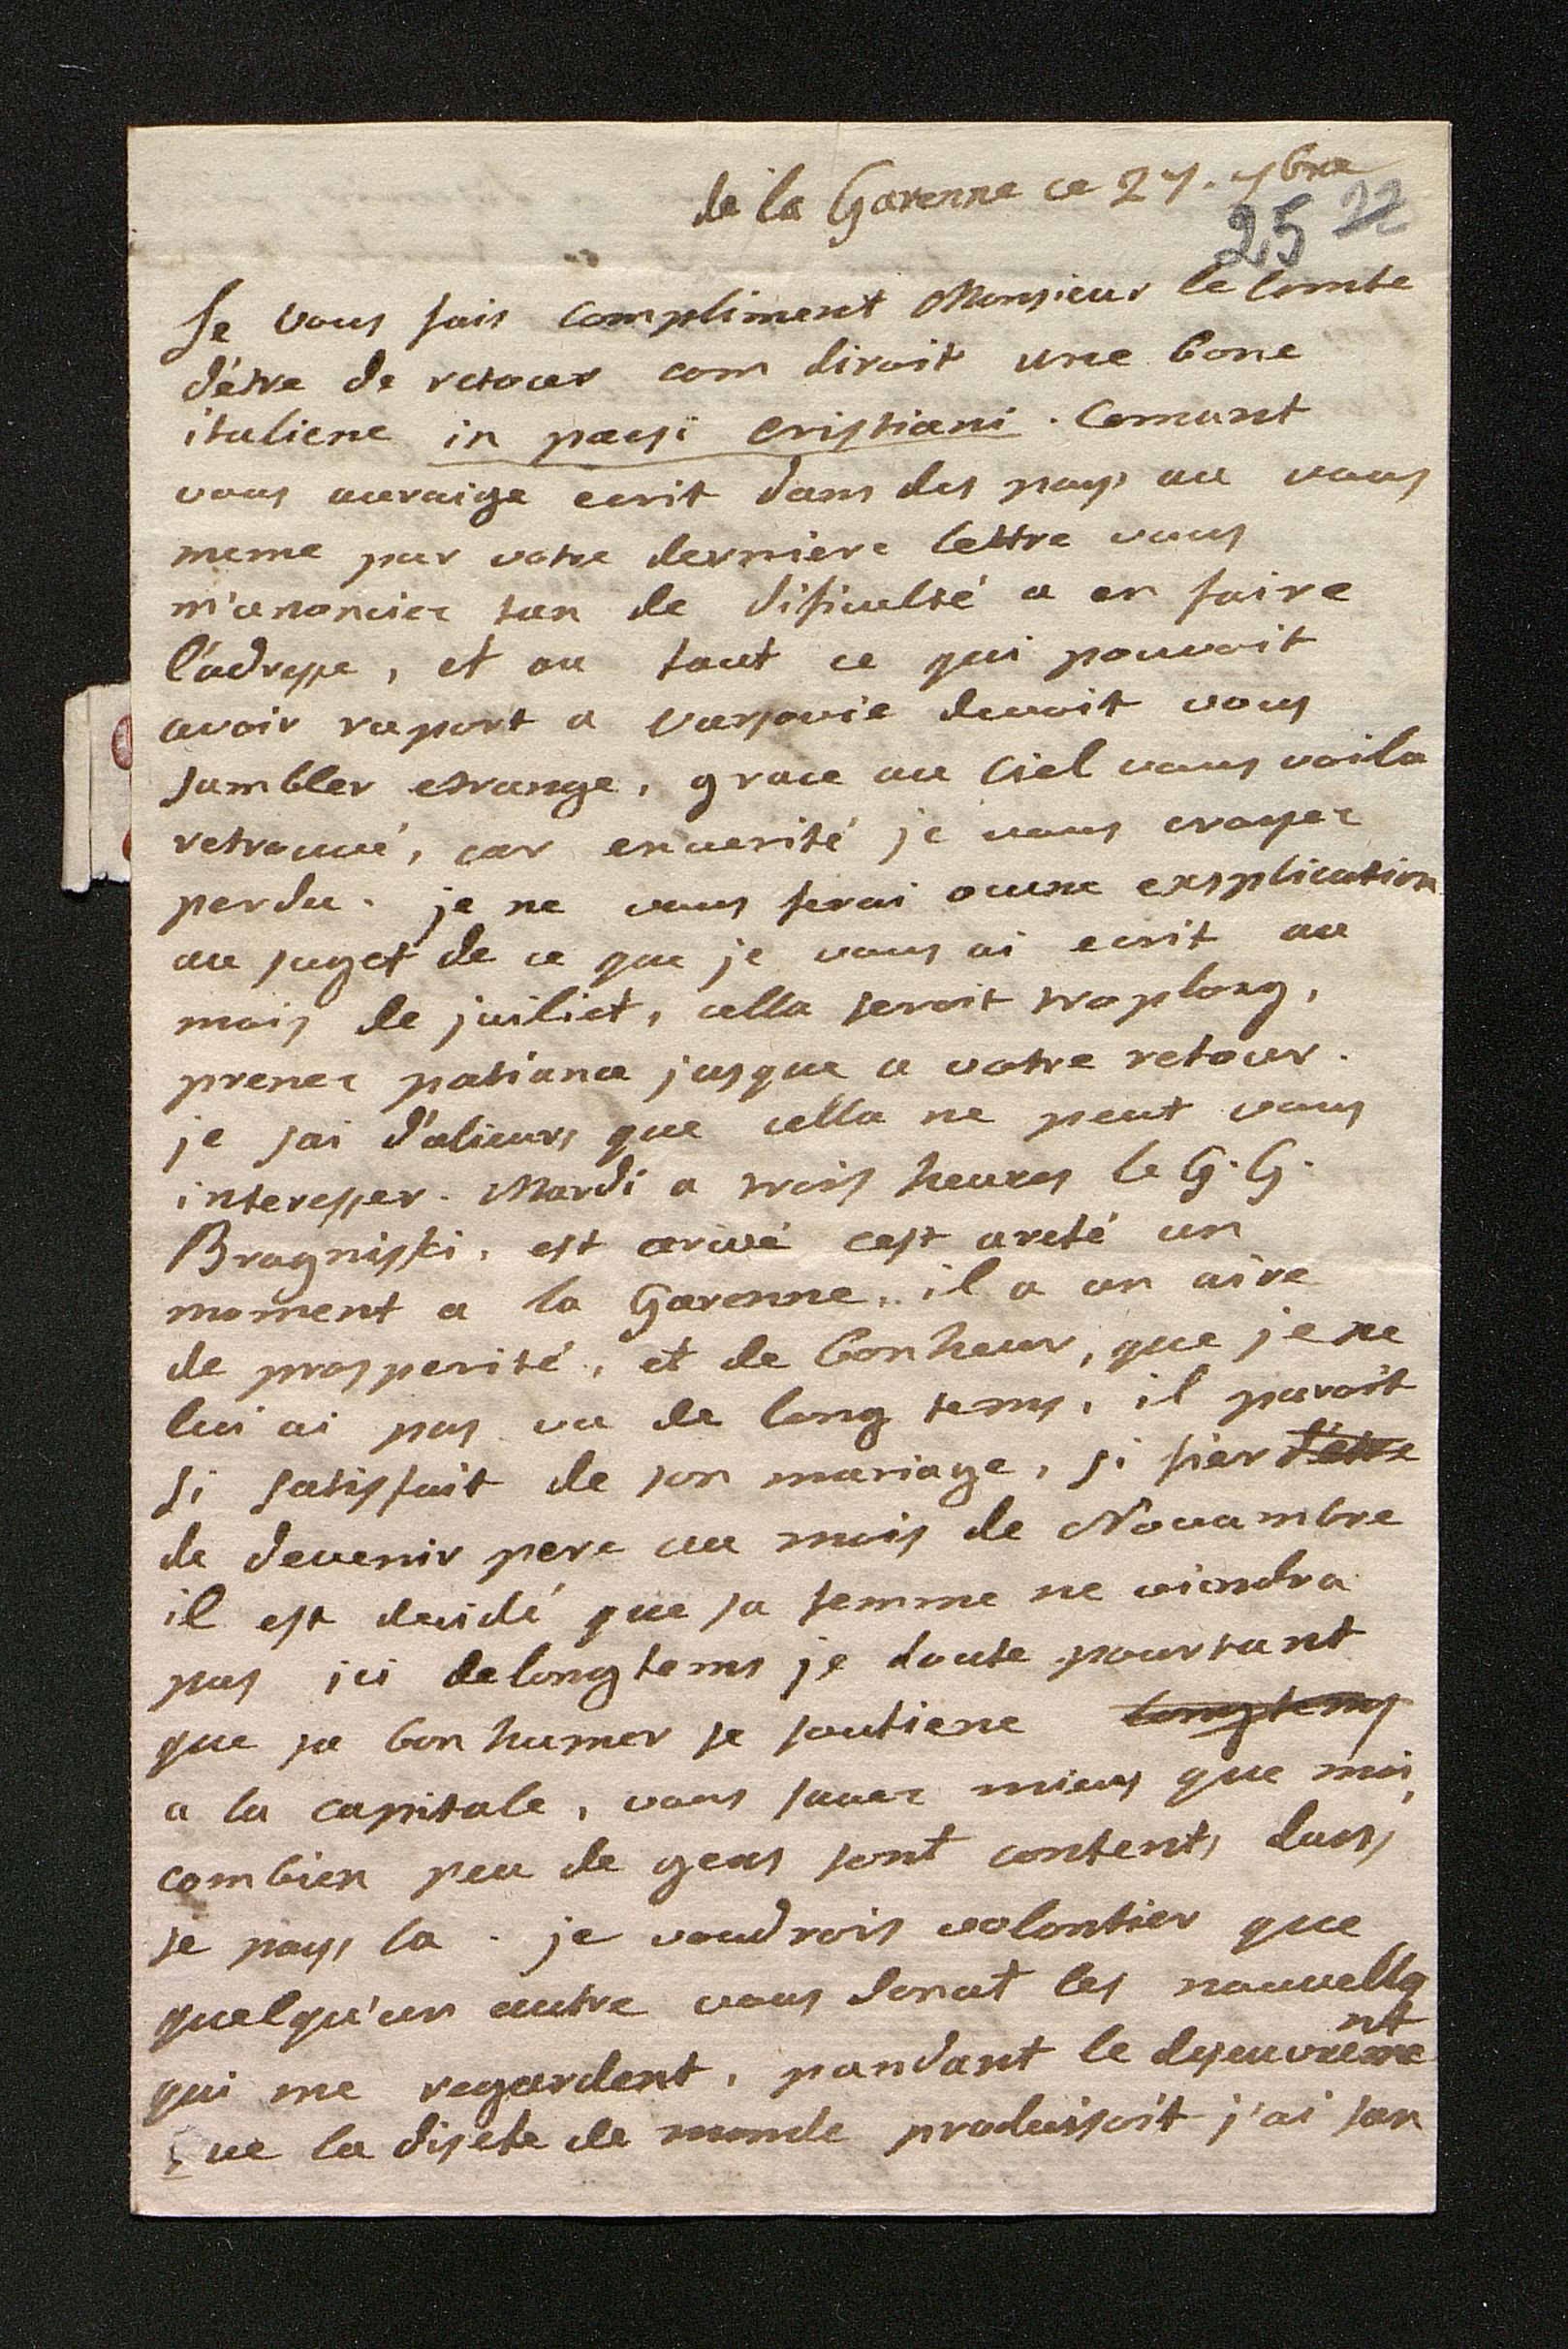 de la Garenne ce 27. 7bre
25 22
Je vous fais compliment Monsieur le Comte
d'étre de retour com diroit une bone
italiene in paesi cristiani. Comant
vous auraige ecrit dans des pays ou vous
meme par votre derniere lettre vous
m'anonciez tan de dificulté a en faire
l'adresse, et ou tout ce qui pouvoit
avoir raport a Varsovie devoit vous
sambler etrange, grace au Ciel vous voila
retrouvé, car enverité je vous croyez
perdu. je ne vous ferai aucune exsplication
au suget de ce que je vous ai ecrit au
mois de juiliet, cella seroit troplong,
prenez patiance jusque a votre retour.
je sai d'alieurs que cella ne peut vous
interesser. Mardi a trois heures le G. G.
Bragnisski, est arivé cest areté un
moment a la Garenne, il a un aire
de prosperité, et de bonheur, que je ne
lui ai pas vu de long tems, il paroit
si satisfait de son mariage, si fier d'etre
de devenir pere au mois de Novambre
il est decidé que sa femme ne viendra
pas ici delongtems je doute pourtant
que sa bon humer se soutiene longtems
a la capitale, vous savez mieus que moi,
combien peu de gens sont contents dans
se pays la. je voudrois volontier que
quelqu'un autre vous donat les nouvelles
qui me regardent, pandant le deseuvrement
que la disete de monde produissoit j'ai san